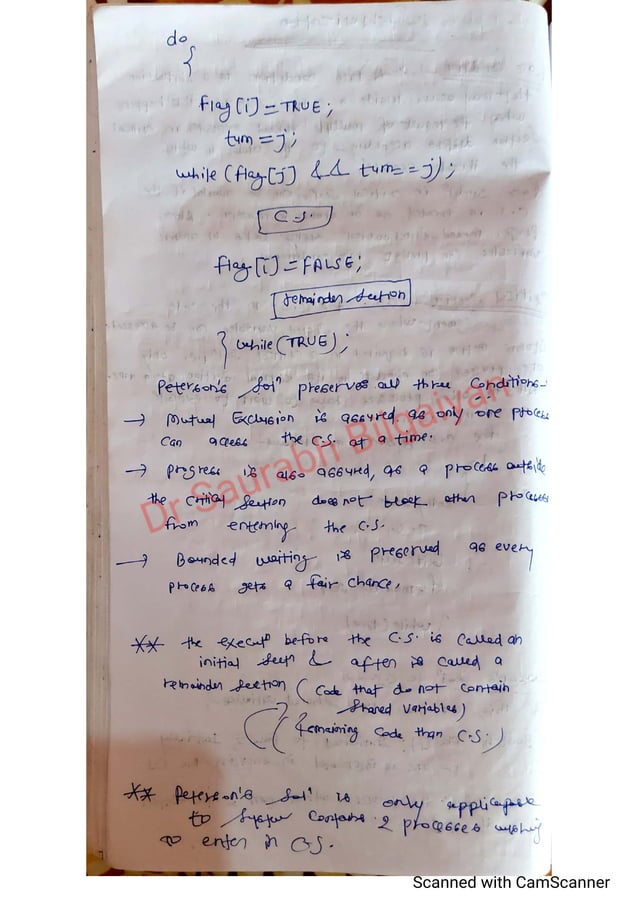 do
{
flag[i] = TRUE;
turn = j;
while (flag[j] && turn == j);
C.S.
flag[i] = FALSE;
remainder section
} while (TRUE);
Peterson's Solⁿ preserves all three conditions -
→ Mutual Exclusion is assured as only one process
can access the C.S. at a time.
→ Progress is also assured, as a process outside
the critical section does not block other processes
from entering the C.S.
→ Bounded waiting is preserved as every
process gets a fair chance.
** the before the C.S. is called an
initial & after is called a
remainder section (code that do not contain
shared variables)
(Remaining code than C.S.)
** Peterson's Solⁿ is only applicable
to system contains 2 processes wishing
to enter in C.S.
Dr Saurabh Bilgaiyan
Scanned with CamScanner